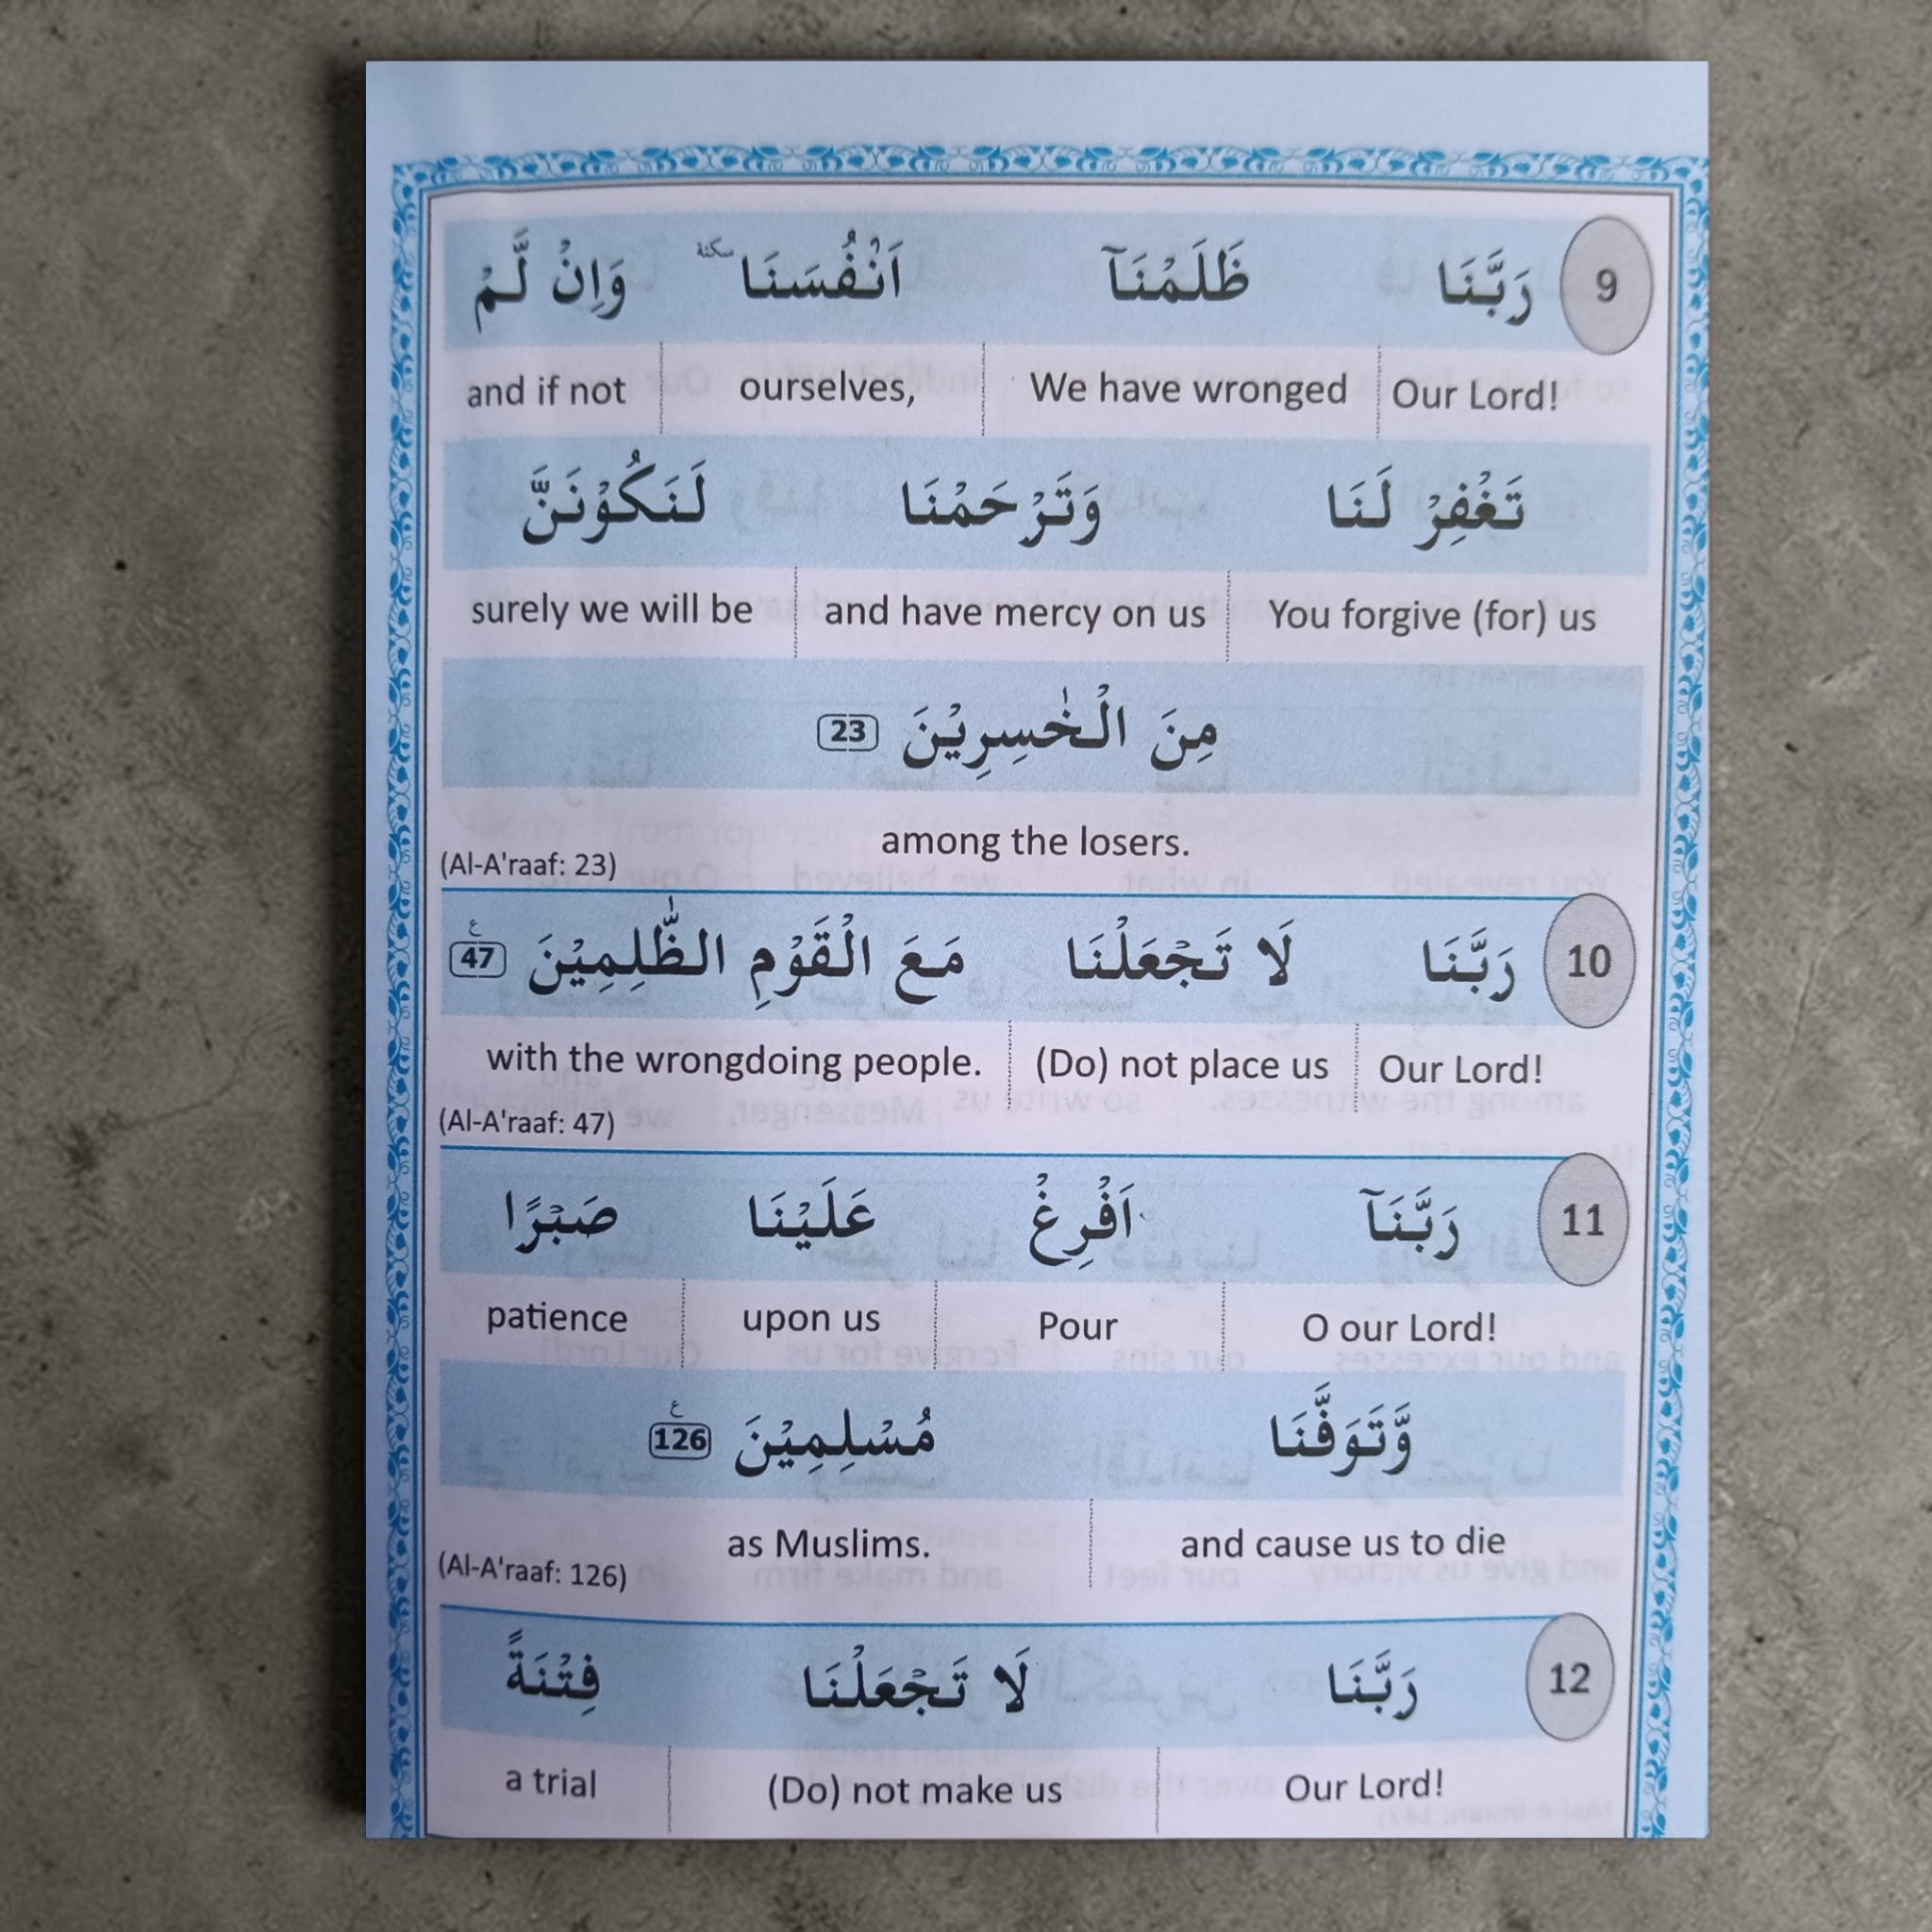 9 رَبَّنَا ظَلَمْنَآ اَنْفُسَنَا سكتة وَاِنْ لَّمْ
Our Lord! We have wronged ourselves, and if not
تَغْفِرْ لَنَا وَتَرْحَمْنَا لَنَكُوْنَنَّ
You forgive (for) us and have mercy on us surely we will be
مِنَ الْخٰسِرِيْنَ 23
among the losers.
(Al-A'raaf: 23)
10 رَبَّنَا لَا تَجْعَلْنَا مَعَ الْقَوْمِ الظّٰلِمِيْنَ ع 47
Our Lord! (Do) not place us with the wrongdoing people.
(Al-A'raaf: 47)
11 رَبَّنَآ اَفْرِغْ عَلَيْنَا صَبْرًا
O our Lord! Pour upon us patience
وَّتَوَفَّنَا مُسْلِمِيْنَ ع 126
and cause us to die as Muslims.
(Al-A'raaf: 126)
12 رَبَّنَا لَا تَجْعَلْنَا فِتْنَةً
Our Lord! (Do) not make us a trial